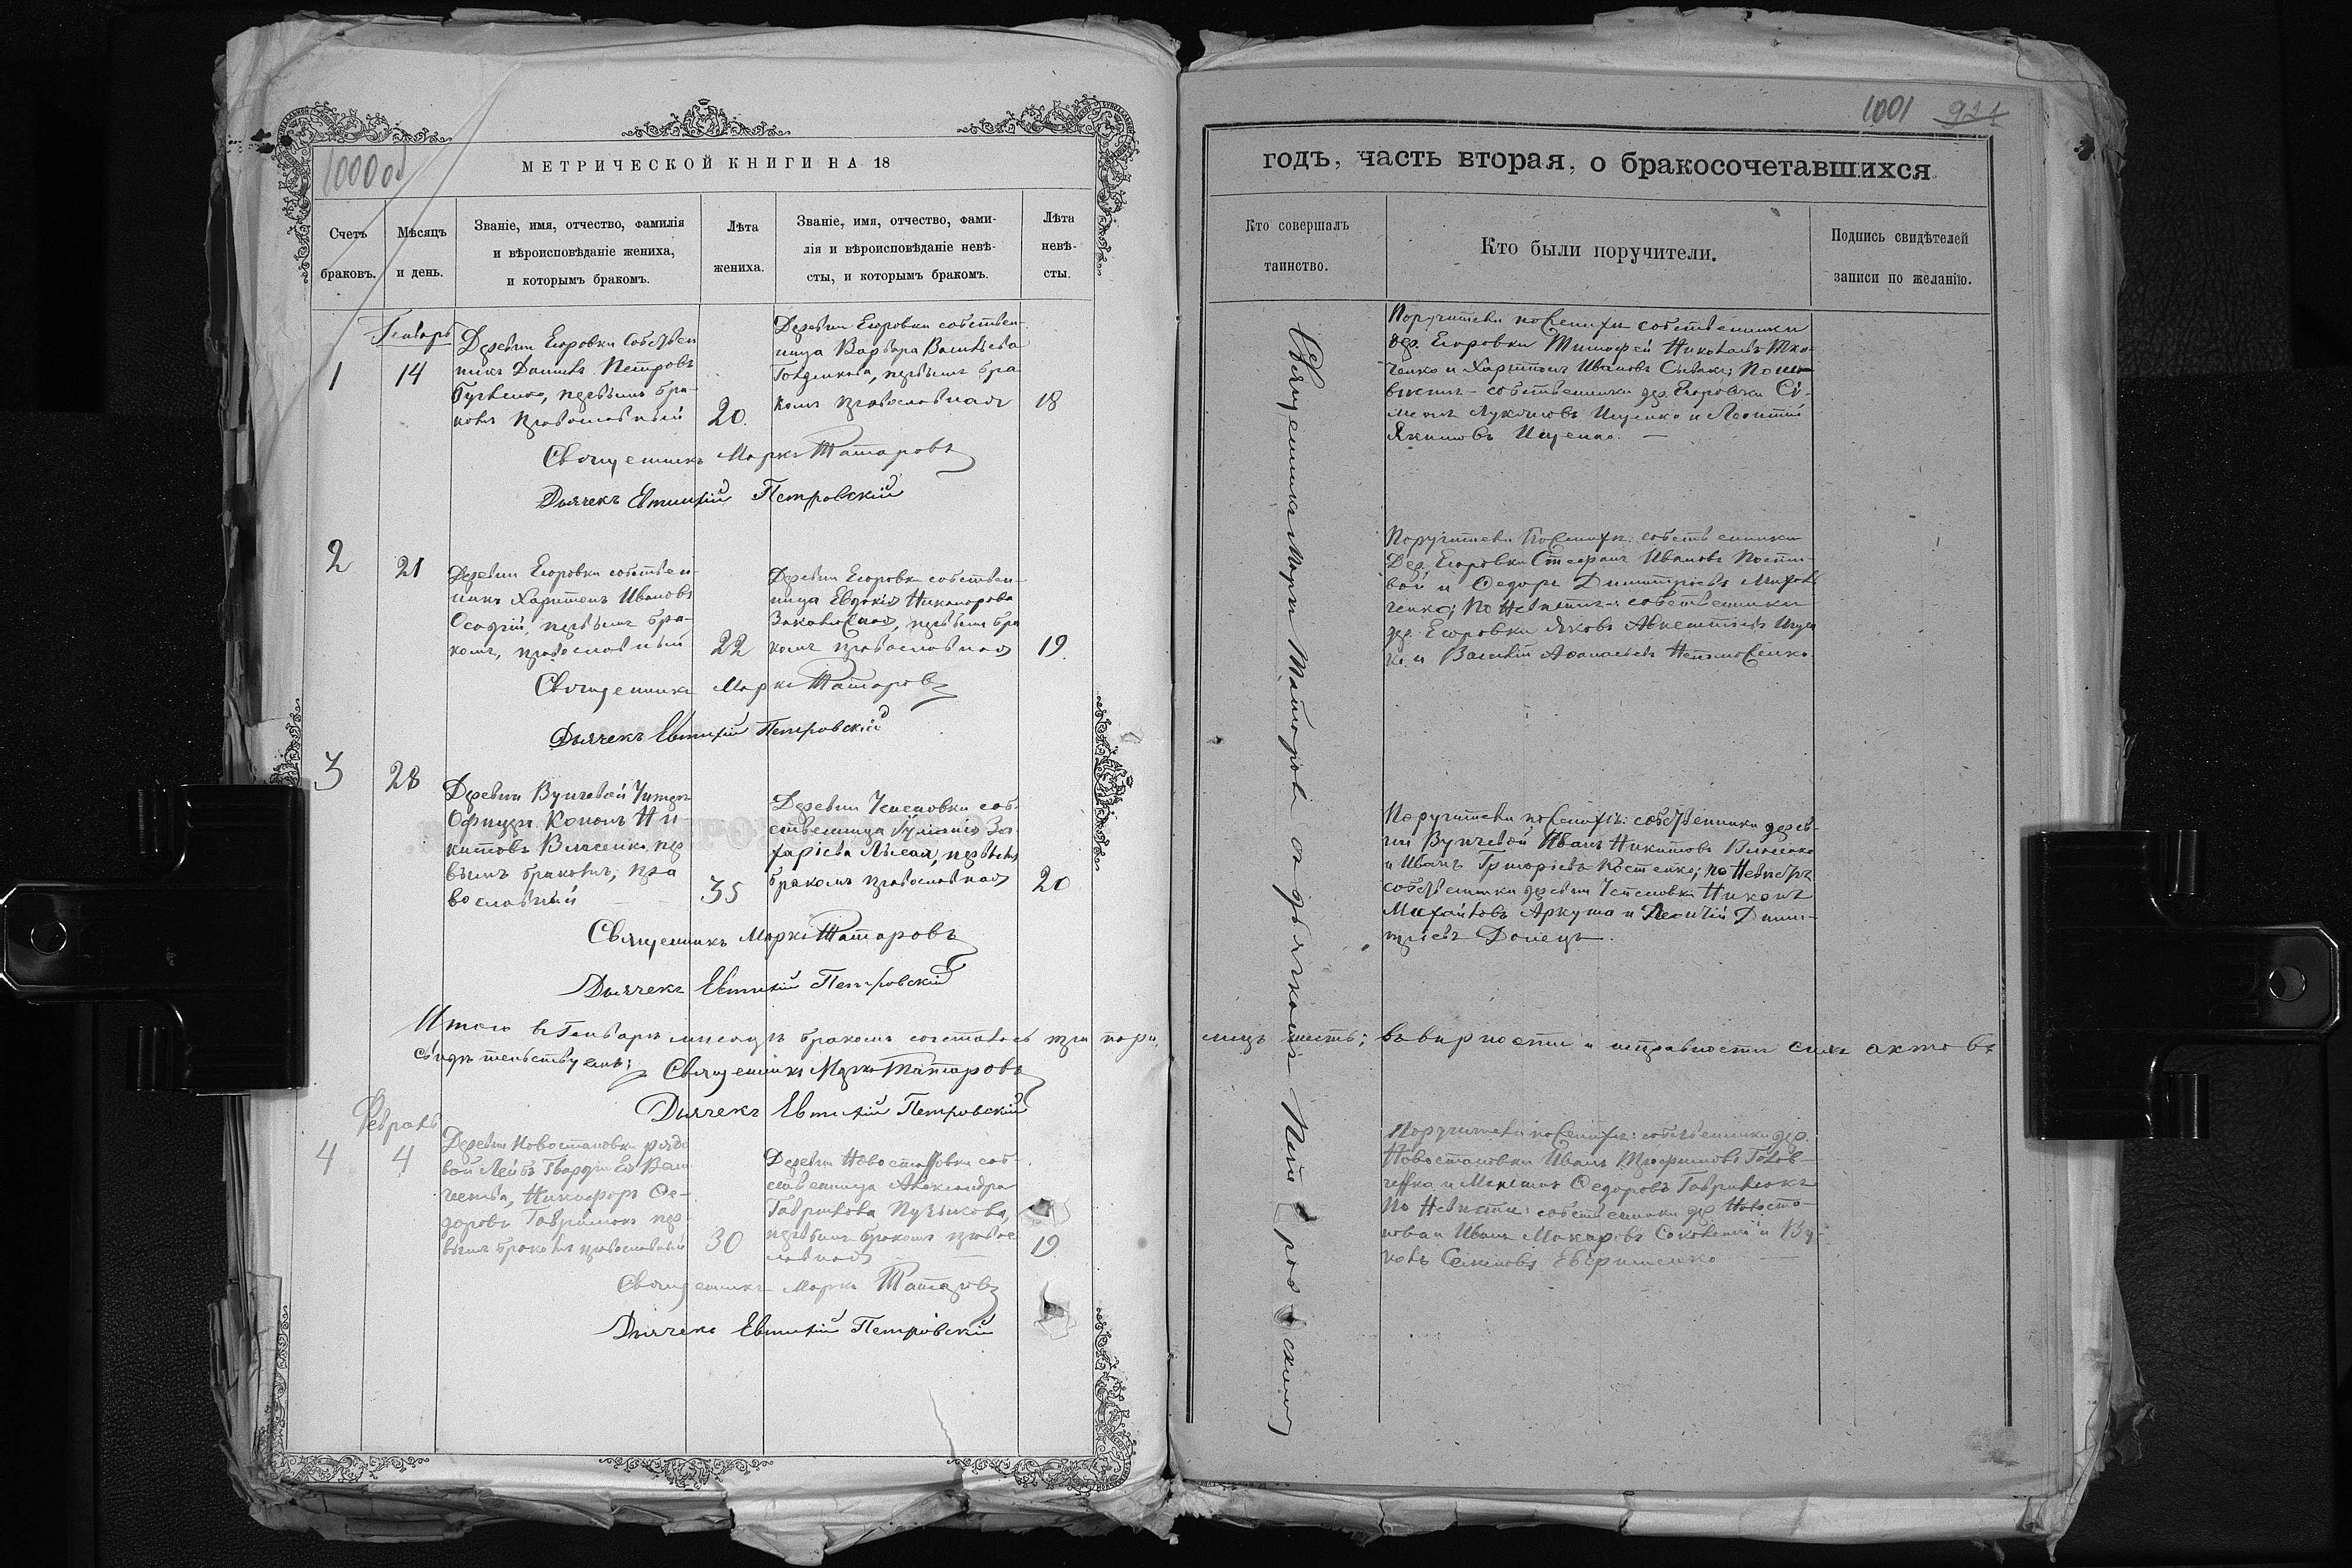 1000 об
МЕТРИЧЕСКОЙ КНИГИ НА 18
Счетъ браковъ.
Мѣсяцъ и день.
Званіе, имя, отчество, фамилія
и вѣроисповѣданіе жениха,
и которымъ бракомъ.
Лѣта
жениха.
Званіе, имя, отчество, фами-
лія и вѣроисповѣданіе невѣ-
сты, и которымъ бракомъ.
Лѣта
невѣ-
сты.
Генварь
1
14
Деревни Егоровки собствен
никъ Даниилъ Петровъ
первымъ бра-
комъ православный
20.
Деревни Егоровки собствен-
ница Варвара Васильева
первымъ бра
комъ православная
18
Священникъ Маркъ Татаровъ
Дьячекъ Евтихій Петровскій
2
21
Деревни Егоровки собствен-
никъ Харитонъ Ивановъ
Осадчій, первымъ бра-
комъ, православный
22
Деревни Егоровки собствен-
ница Евдокія Никанорова
первымъ бра
комъ православная
19.
Священникъ Маркъ Татаровъ
Дьячекъ Евтихій Петровскій
3
28
Деревни Вунчевой Унтеръ
Офицеръ Кононъ Ни-
китовъ Власенко, пер
вымъ бракомъ, пра
вославный
35
Деревни собственница Іуліанія За
харіева Лысая, первымъ
бракомъ православная
20
Священникъ Маркъ Татаровъ
Дьячекъ Евтихій Петровскій
Итого въ Генварѣ мѣсяцѣ бракомъ сочеталось три пары,
свидѣтельствуемъ:
Священникъ Маркъ Татаровъ
Дьячекъ Евтихій Петровскій
Февраль
4
4
Деревни Новостановки рядо
вой Лейбъ Гвардіи Его Вели
чества, Никифоръ Ѳе-
доровъ Гавриленко пер
вымъ бракомъ православный
30
Деревни Новостановки соб
ственница Александра
Гаврилова Пузикова,
первымъ бракомъ правос
лавная
19.
Священникъ Маркъ Татаровъ
Дьячекъ Евтихій Петровскій
1001 921
годъ, часть вторая, о бракосочетавшихся
Кто совершалъ
таинство.
Кто были поручители.
Подпись свидѣтелей
записи по желанію.
Священникъ Маркъ Татаровъ съ дьячкомъ Петровскимъ
Поручители по женихѣ собственники
дер. Егоровки Тимофей Николаевъ Тка-
ченко и Харитонъ Ивановъ по не-
вѣстѣ - собственники дер. Егоровки Си-
меонъ Лукьяновъ Ищенко и Леонтій
Якимовъ Ищенко. —
Поручители по женихѣ: собственники
Дер. Егоровки Стефанъ Ивановъ
и Ѳедоръ Димитріевъ
по невѣстѣ: собственники
дер. Егоровки Яковъ Авксентіевъ Ищен
ко и Василій Аѳанасьевъ
Поручители по женихѣ: собственники дерев-
ни Вунчевой Иванъ Никитовъ Власенко
и Иванъ Григорьевъ Костенко; по невѣстѣ
собственники деревни Никонъ
Михайловъ Аркуша и Леонтій Дими-
тріевъ Донецъ.
лицъ шесть; въ вѣрности и исправности сихъ актовъ
Поручители по женихѣ: собственники дер.
Новостановки Иванъ Трофимовъ Голов-
ченко и Максимъ Ѳедоровъ Гавриленко
по невѣстѣ: собственники дер Новоста-
новки Иванъ Макаровъ